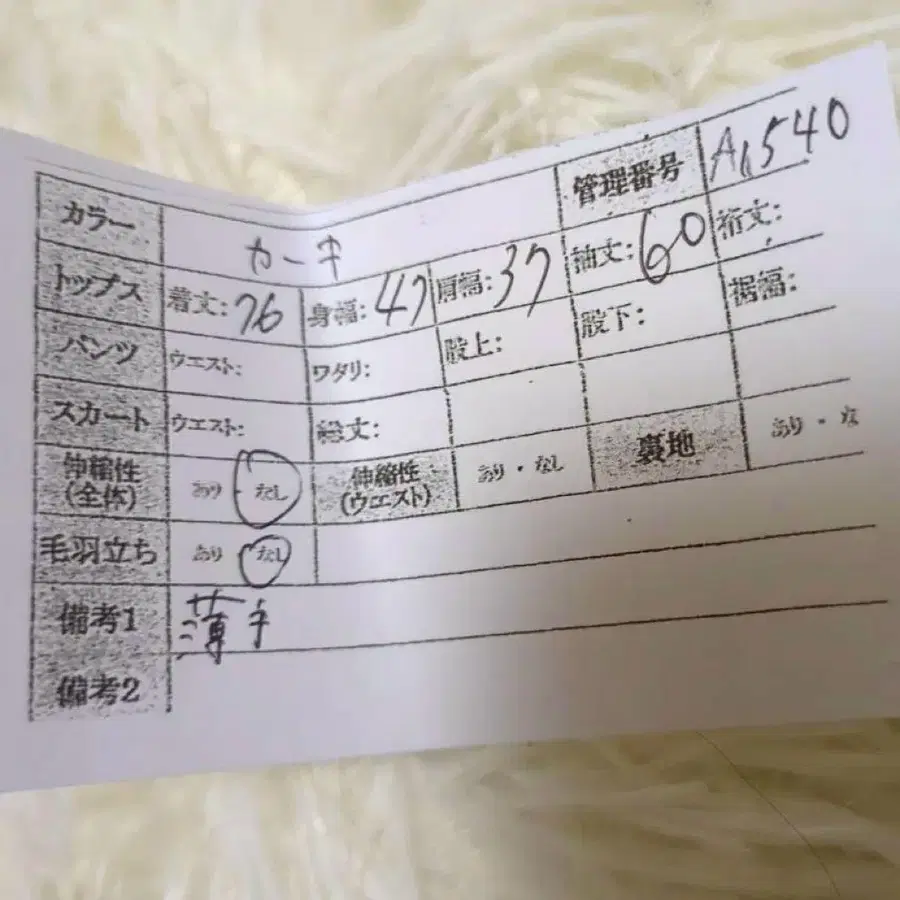 カラー カーキ 管理番号 A11540
トップス 着丈: 76 身幅: 47 肩幅: 37 袖丈: 60 裄丈:
パンツ ウエスト: ワタリ: 股上: 股下: 裾幅:
スカート ウエスト: 総丈:
伸縮性(全体) あり・なし 伸縮性(ウエスト) あり・なし 裏地 あり・な
毛羽立ち あり なし
備考1 薄手
備考2